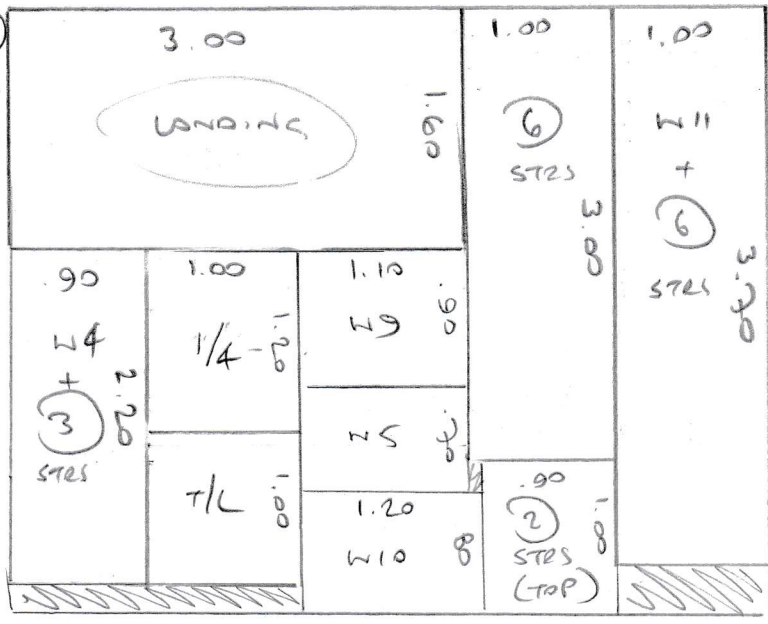 3.00
LANDING
1.60
1.00
6
STRS
3.00
1.00
W11
+
6
STRS
3.70
.90
W4
+
3
STRS
2.20
1.00
1/4
1.20
T/L
1.00
1.10
W9
.90
W5
.70
1.20
W10
.90
2
STRS
(TOP)
1.00